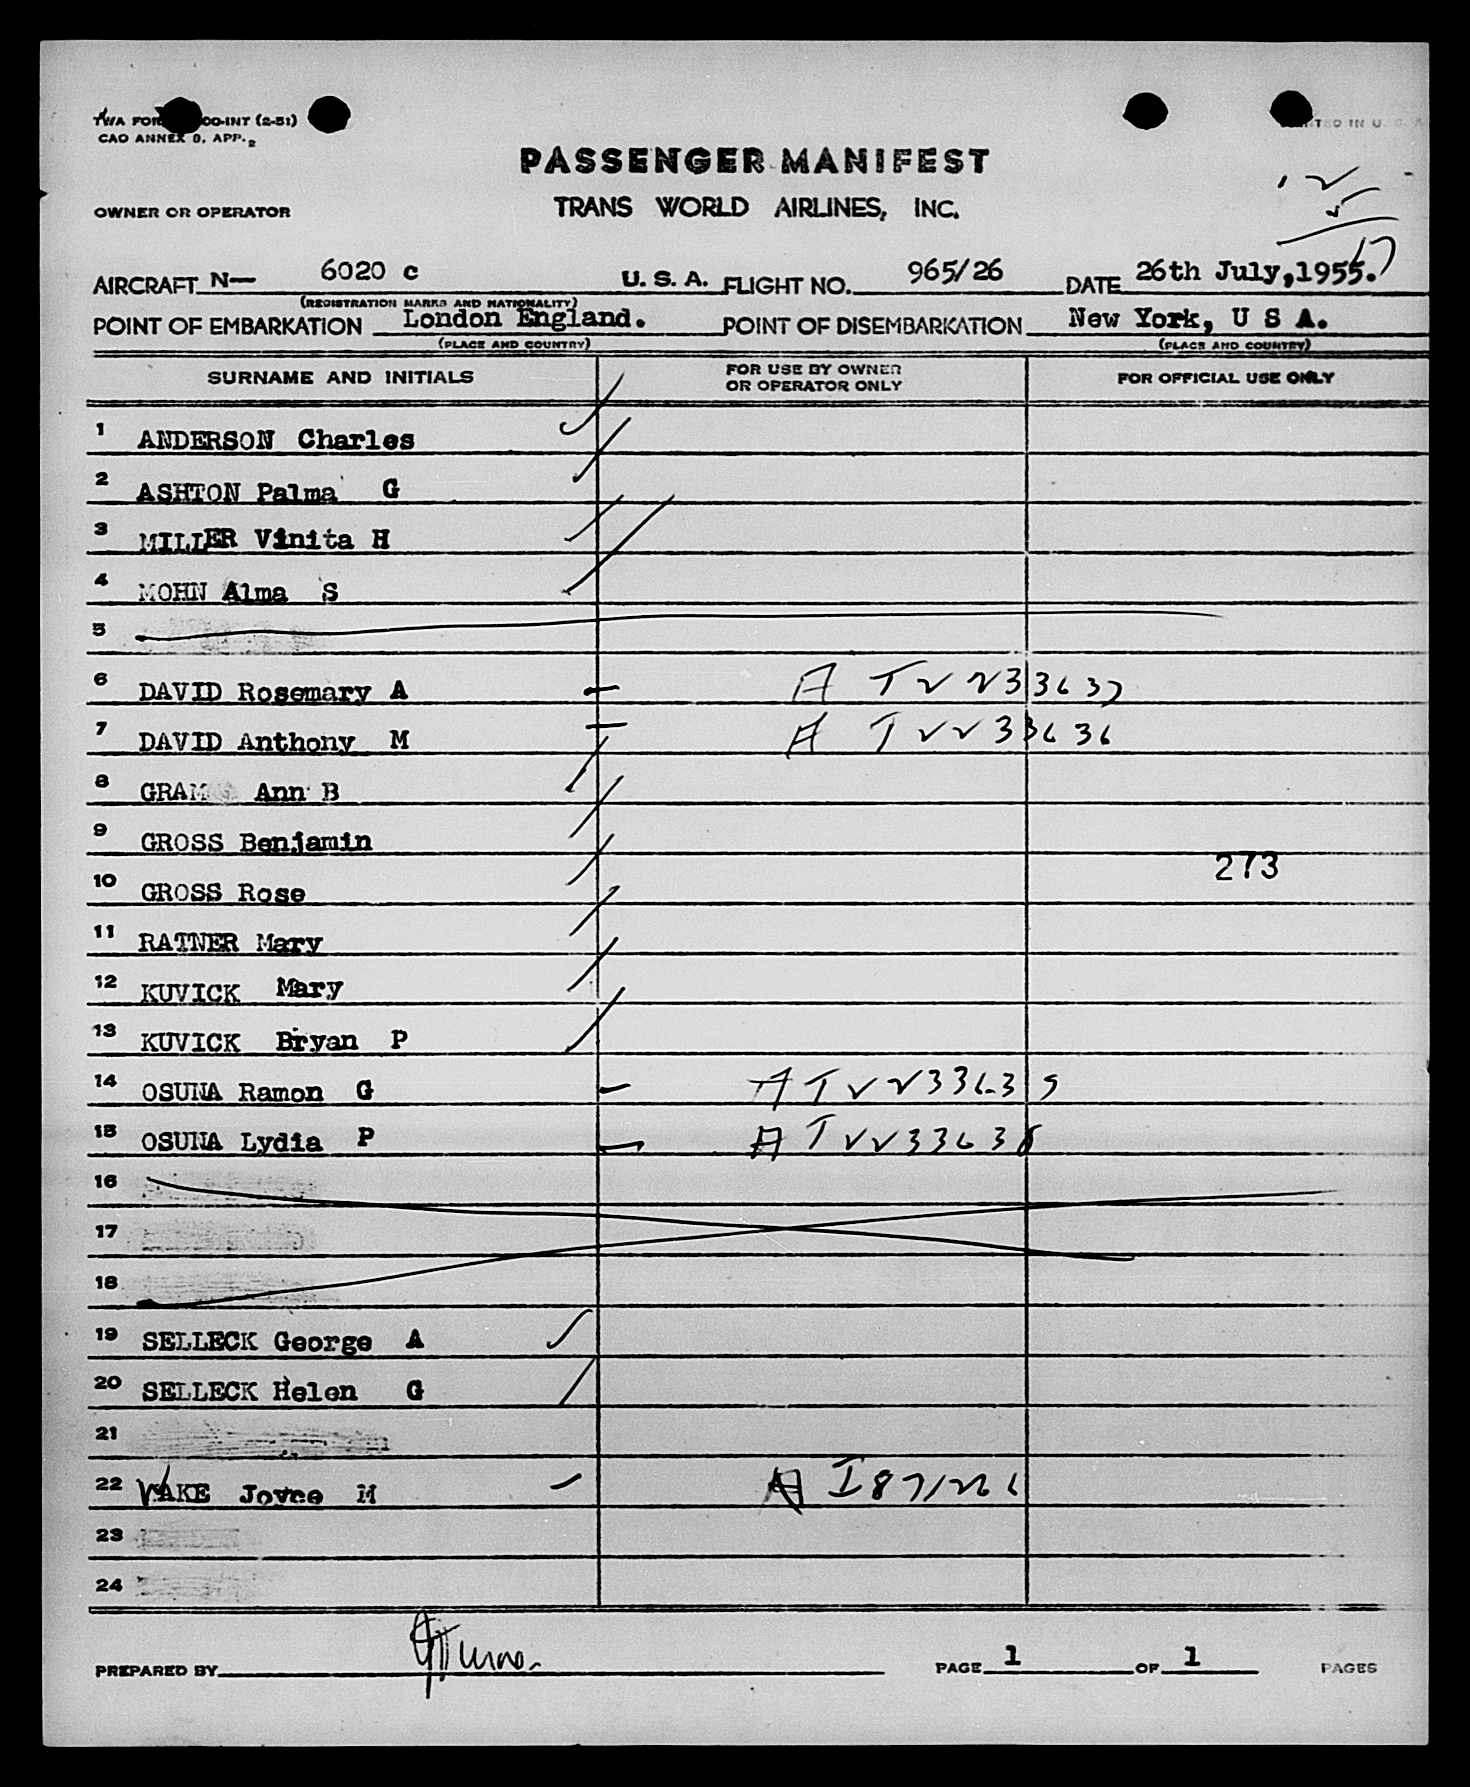 CAO ANNEX 9, APP. 2
PASSENGER MANIFEST
OWNER OR OPERATOR
TRANS WORLD AIRLINES, INC.
12
5
17
AIRCRAFT N— 6020 c U. S. A. FLIGHT NO. 965/26 DATE 26th July,1955.
(REGISTRATION MARKS AND NATIONALITY)
POINT OF EMBARKATION London England. POINT OF DISEMBARKATION New York, U S A.
(PLACE AND COUNTRY) (PLACE AND COUNTRY)
SURNAME AND INITIALS FOR USE BY OWNER OR OPERATOR ONLY FOR OFFICIAL USE ONLY
1 ANDERSON Charles
2 ASHTON Palma G
3 MILLER Vinita H
4 MOHN Alma S
5
6 DAVID Rosemary A A T2233637
7 DAVID Anthony M A T2233636
8 GRAM Ann B
9 GROSS Benjamin
273
10 GROSS Rose
11 RATNER Mary
12 KUVICK Mary
13 KUVICK Bryan P
14 OSUNA Ramon G A T2233639
15 OSUNA Lydia P A T2233638
16
17
18
19 SELLECK George A
20 SELLECK Helen G
21
22 WAKE Joyce M A I871226
23
24
PREPARED BY PAGE 1 OF 1 PAGES